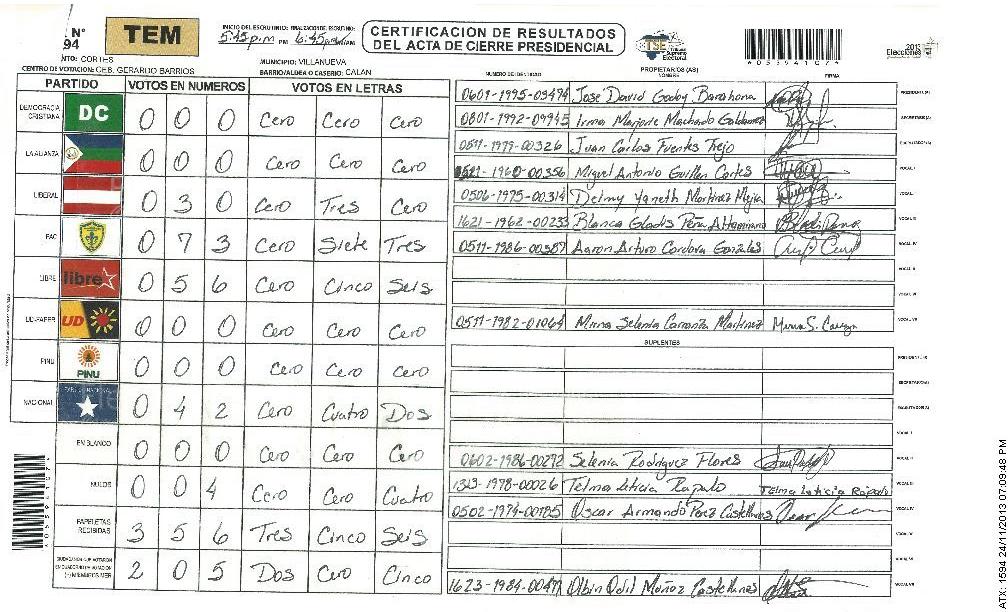 N°
94
TEM
INICIO DEL ESCRUTINIO: FINALIZACION DE ESCRUTINIO:
5:45 p.m PM 6:45 p.m
CERTIFICACION DE RESULTADOS
DEL ACTA DE CIERRE PRESIDENCIAL
TSE
Tribunal
Supremo
Electoral
2013
Elecciones
NTO: CORTES
MUNICIPIO: VILLANUEVA
CENTRO DE VOTACION: CEB. GERARDO BARRIOS
BARRIO/ALDEA O CASERIO: CALAN
PARTIDO VOTOS EN NUMEROS VOTOS EN LETRAS
DEMOCRACIA CRISTIANA DC 0 0 0 Cero Cero Cero
LA ALIANZA 0 0 0 Cero Cero Cero
LIBERAL 0 3 0 Cero Tres Cero
PAC 0 7 3 Cero Siete Tres
LIBRE libre 0 5 6 Cero Cinco Seis
UD-FAPER UD 0 0 0 Cero Cero Cero
PINU PINU 0 0 0 Cero Cero Cero
NACIONAL 0 4 2 Cero Cuatro Dos
EN BLANCO 0 0 0 Cero Cero Cero
NULOS 0 0 4 Cero Cero Cuatro
PAPELETAS RECIBIDAS 3 5 6 Tres Cinco Seis
2 0 5 Dos Cero Cinco
NUMERO DE IDENTIDAD PROPIETARIOS (AS) NOMBRE FIRMA
0601-1995-03494 Jose David Godoy Barahona PRESIDENTE(A)
0801-1992-09945 Irma Marjorie Machado Galdamez SECRETARIO(A)
0511-1979-00326 Juan Carlos Fuentes Trejo ESCRUTADOR(A)
1960-00356 Miguel Antonio Guillen Cortes VOCAL I
0506-1975-00314 Delmy Yaneth Martinez Mejia VOCAL II
1621-1962-00233 Blanca Gladis Peña Altamirano VOCAL III
0511-1986-00387 Aaron Arturo Cordova Gonzales VOCAL IV
VOCAL V
VOCAL VI
0511-1982-01064 Mirna Selenia Carranza Martinez Mirna S. Carranza VOCAL VII
SUPLENTES
PRESIDENTE(A)
SECRETARIO(A)
ESCRUTADOR(A)
VOCAL I
0602-1986-00272 Selenia Rodriguez Flores VOCAL II
1313-1978-00026 Telma Leticia Rapalo Telma Leticia Rápalo VOCAL III
0502-1974-00185 Oscar Armando Perez Castellanos VOCAL IV
VOCAL V
VOCAL VI
1623-1984-00471 Olbin Odil Muñoz Castellanos VOCAL VII
ATX: 1594 24/11/2013 07:09:48 PM